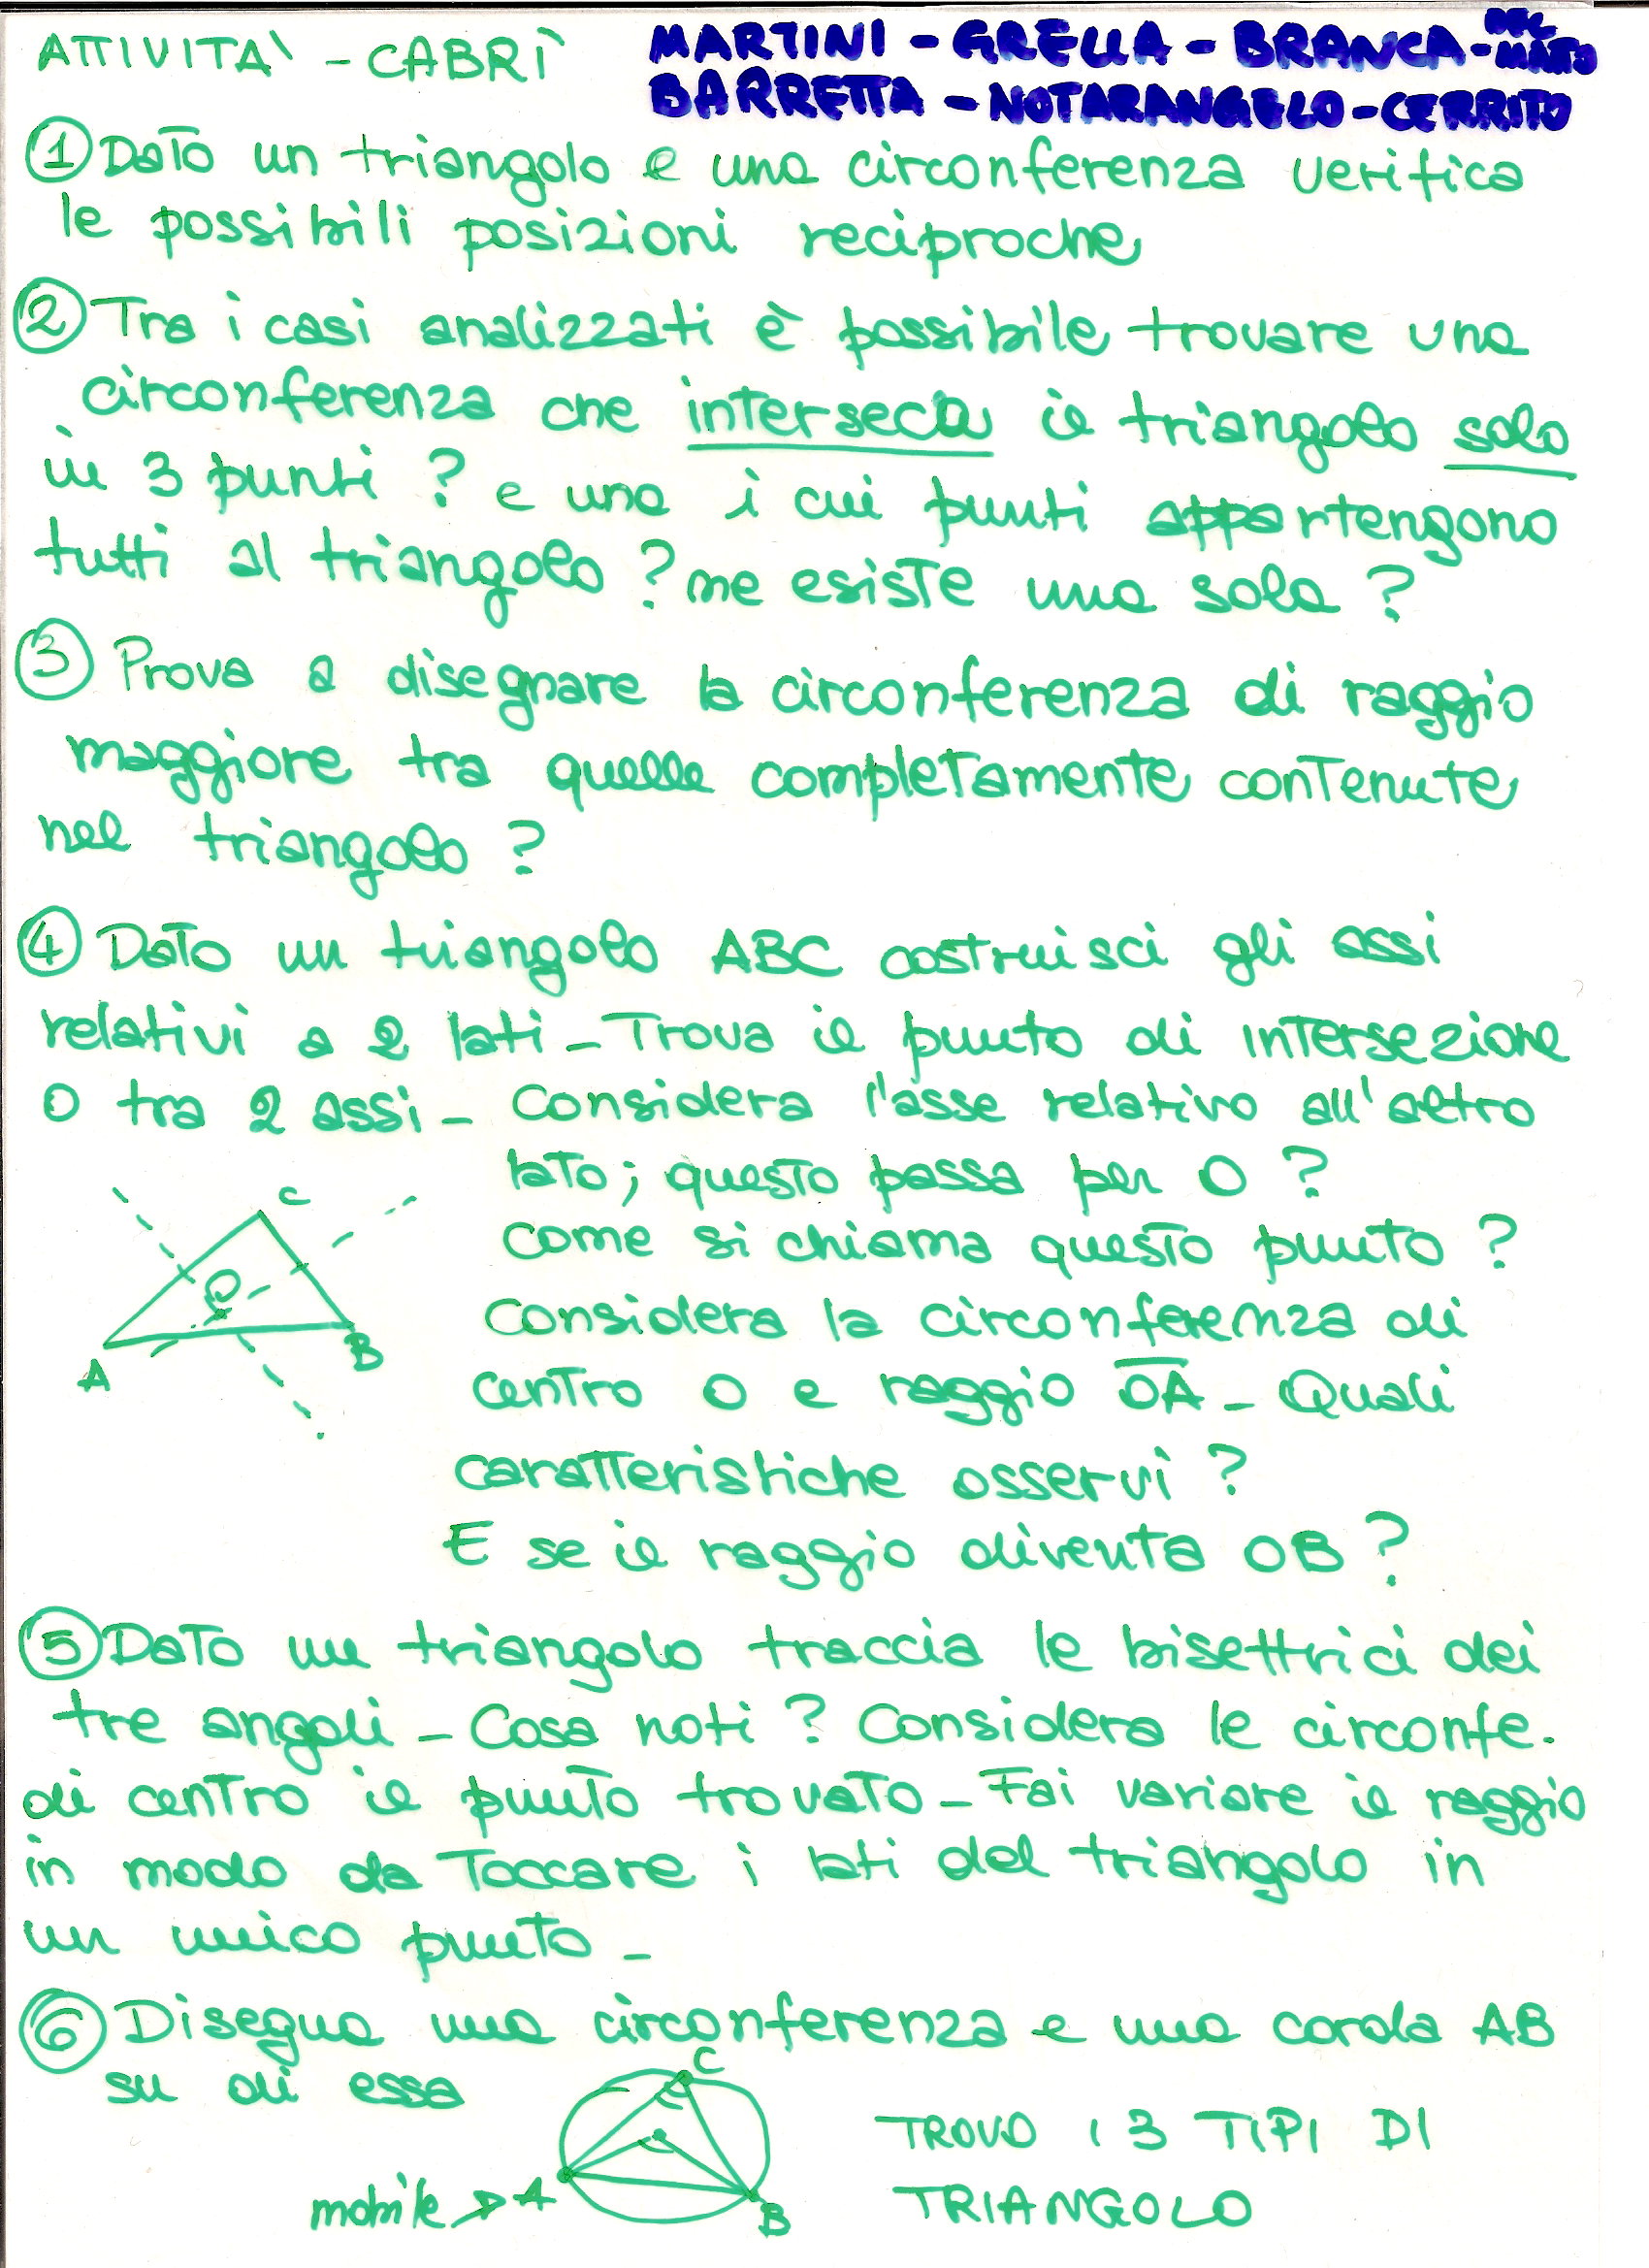 ATTIVITA' - CABRÌ
MARTINI - GRELLA - BRANCA - DEL MATTO
BARRETTA - NOTARANGELO - CERRITO
① Dato un triangolo e una circonferenza verifica
le possibili posizioni reciproche
② Tra i casi analizzati è possibile trovare una
circonferenza che interseca il triangolo solo
in 3 punti ? e una i cui punti appartengono
tutti al triangolo ? ne esiste una sola ?
③ Prova a disegnare la circonferenza di raggio
maggiore tra quelle completamente contenute
nel triangolo ?
④ Dato un triangolo ABC costruisci gli assi
relativi a 2 lati - Trova il punto di intersezione
O tra 2 assi - Considera l'asse relativo all'altro
lato ; questo passa per O ?
Come si chiama questo punto ?
Considera la circonferenza di
centro O e raggio OA - Quali
caratteristiche osservi ?
E se il raggio diventa OB ?
C
O
A
B
⑤ Dato un triangolo traccia le bisettrici dei
tre angoli - Cosa noti ? Considera le circonfe.
di centro il punto trovato - Fai variare il raggio
in modo da Toccare i lati del triangolo in
un unico punto -
⑥ Disegna una circonferenza e una corda AB
su di essa
C
mobile → A
B
TROVO I 3 TIPI DI
TRIANGOLO